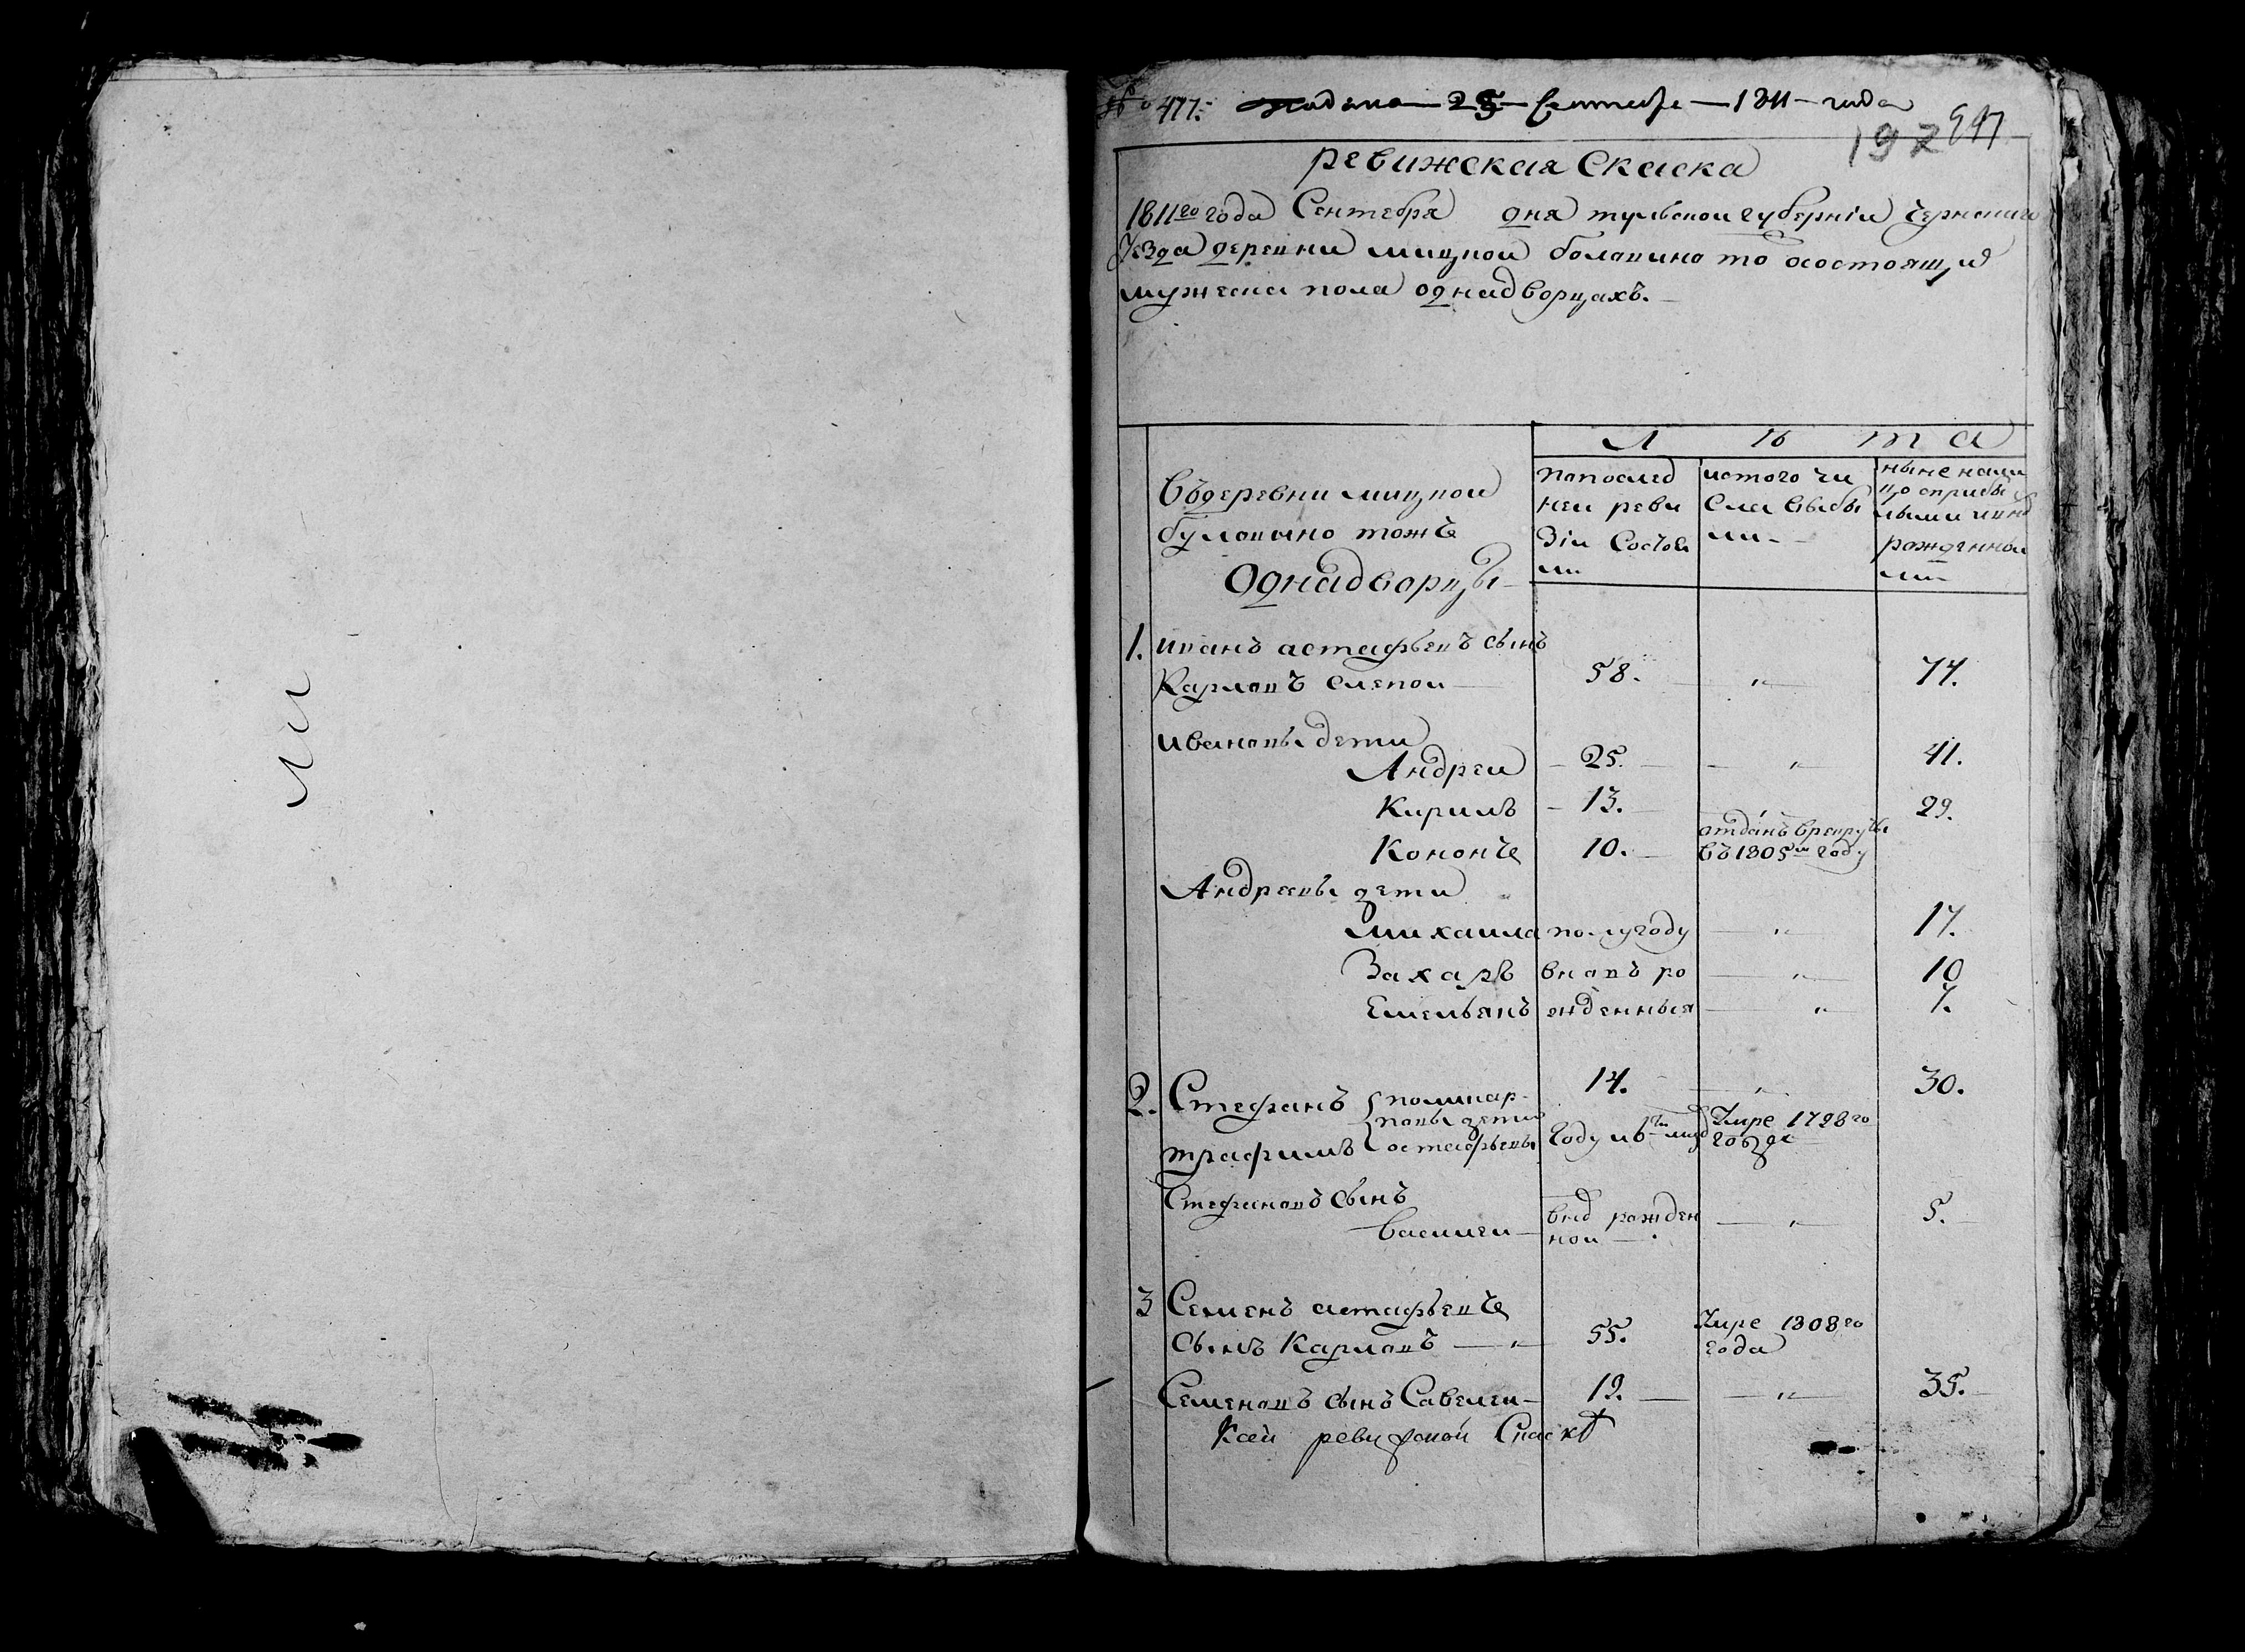 № 477. Подана 25 Сентебре 1811 года
197
ревижская Скаска
1811го года Сентебря дня тульской губерніи Чернскаго
Уезда деревни мицнои болапина то ж о состоящи
мужеска пола однадворцахъ.
Л ѣ т а
Въ деревни мицнои
булапино тожъ
Однадворцы
попослед
неи реви
зіи Состоя
ли
истого чи
сла выбы
ли
ныне нали
цо сприбы
лыми ивно
рожденны
ми
1. иванъ астафьевъ сынъ
Карповъ слепои 58. 74.
ивановы дети
Андреи 25. 41.
Кирилъ 13. 29.
Кононъ 10. отданъ врекруты
въ 1805м году
Андреевы дети
михаила полугоду 17.
Захаръ вновь ро 10
Емельянъ жденныя 7.
2. Стефанъ поликар 14. 30.
повы дети
трафимъ остафьевы году и 6ти мцд Умре 1798го
года
Стефановъ сынъ
василеи внов рожден 5.
нои
3 Семенъ астафьевъ
сынъ Карповъ 55. Умре 1808го
года
Семеновъ сынъ Савелеи 19. 35.
Ксеи ревизской Скаскѣ